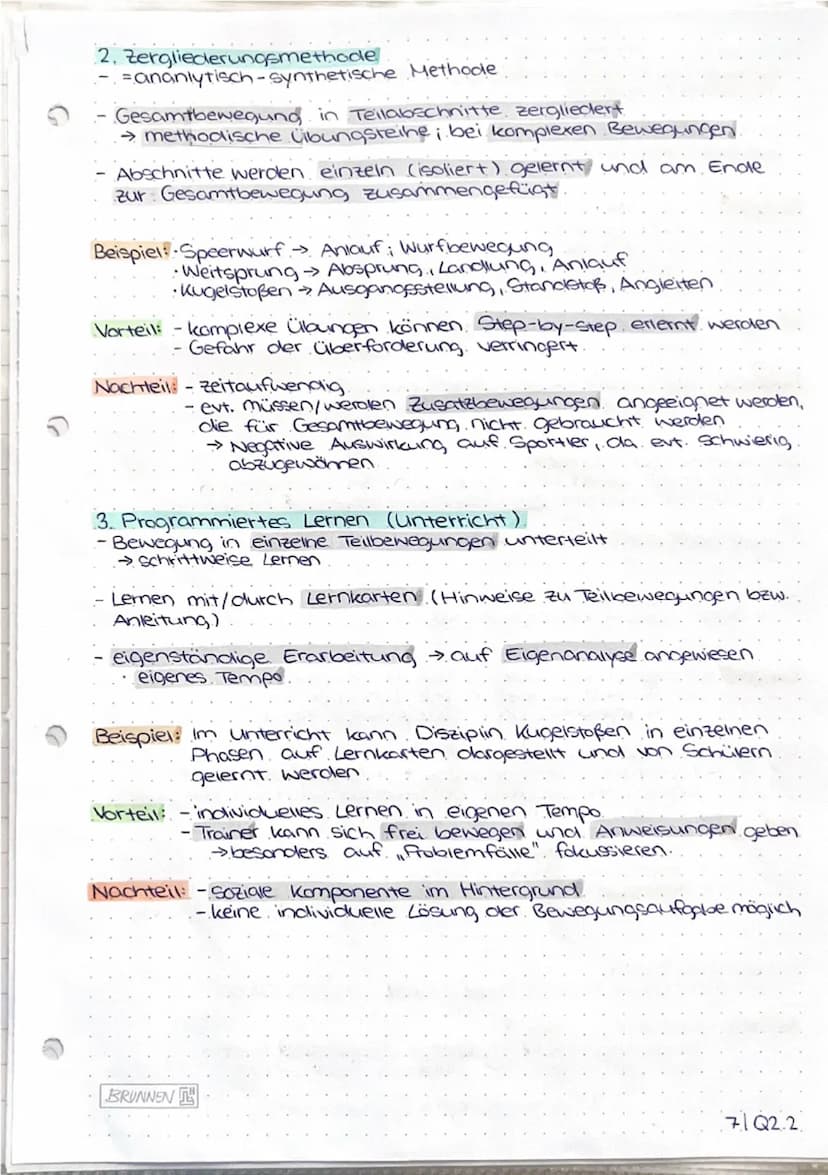 2. Zergliederungsmethode
- = ananlytisch-synthetische Methode
- Gesamtbewegung in Teilabschnitte zergliedert
→ methodische Übungsreihe; bei komplexen Bewegungen
- Abschnitte werden einzeln (isoliert) gelernt und am Ende
zur Gesamtbewegung zusammengefügt
Beispiel: · Speerwurf → Anlauf; Wurfbewegung
· Weitsprung → Absprung, Landung, Anlauf
· Kugelstoßen → Ausgangsstellung, Standstoß, Angleiten
Vorteil: - komplexe Übungen können Step-by-step erlernt werden
- Gefahr der Überforderung verringert
Nachteil: - zeitaufwendig
- evt. müssen/werden Zusatzbewegungen angeeignet werden,
die für Gesamtbewegung nicht gebraucht werden
→ Negative Auswirkung auf Sportler, da evt. schwierig
abzugewöhnen
3. Programmiertes Lernen (Unterricht)
- Bewegung in einzelne Teilbewegungen unterteilt
→ schrittweise Lernen
- Lernen mit/durch Lernkarten (Hinweise zu Teilbewegungen bzw.
Anleitung)
- eigenständige Erarbeitung → auf Eigenanalyse angewiesen
· eigenes Tempo
Beispiel: Im Unterricht kann Disziplin Kugelstoßen in einzelnen
Phasen auf Lernkarten dargestellt und von Schülern
gelernt werden
Vorteil: - individuelles Lernen in eigenen Tempo
- Trainer kann sich frei bewegen und Anweisungen geben
→ besonders auf „Problemfälle" fokussieren
Nachteil: - soziale Komponente im Hintergrund
- keine individuelle Lösung der Bewegungsaufgabe möglich
BRUNNEN
7/Q2.2